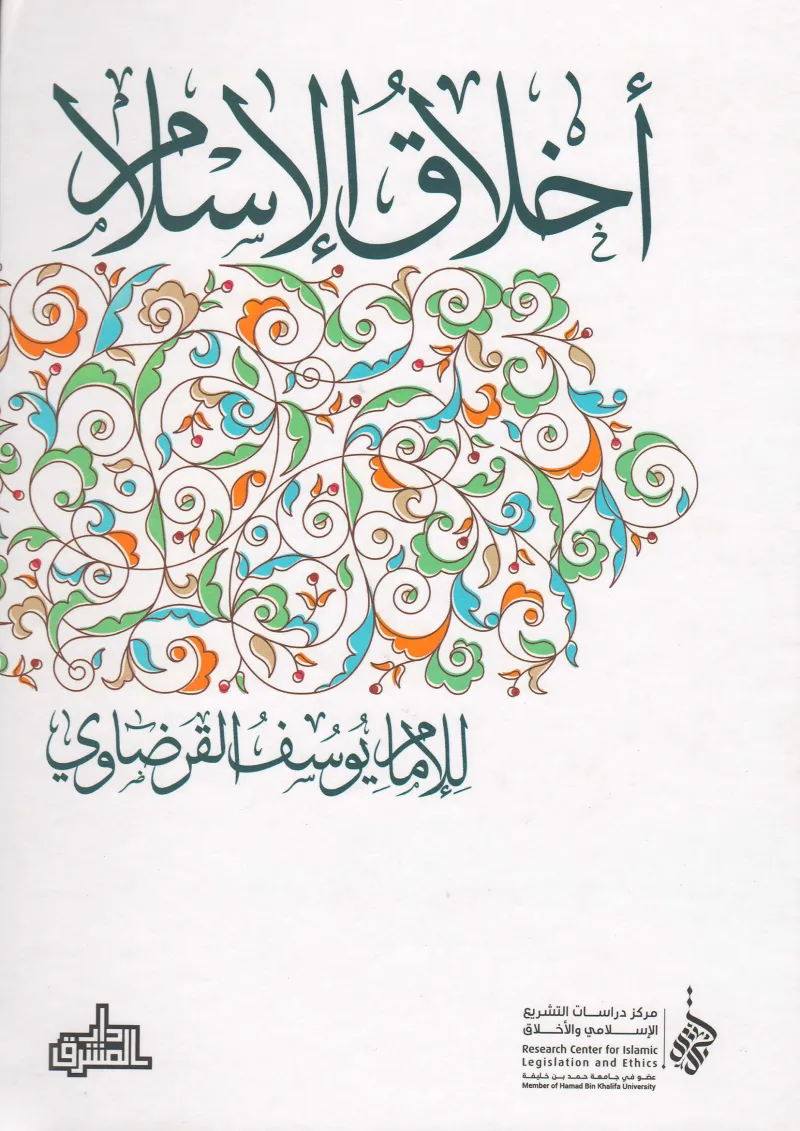 أخلاقُ الإسلام
لِلإمامِ يُوسُف القرضاوي
دار
المشرق
مركز دراسات التشريع
الإسلامي والأخلاق
Research Center for Islamic
Legislation and Ethics
عضو في جامعة حمد بن خليفة
Member of Hamad Bin Khalifa University